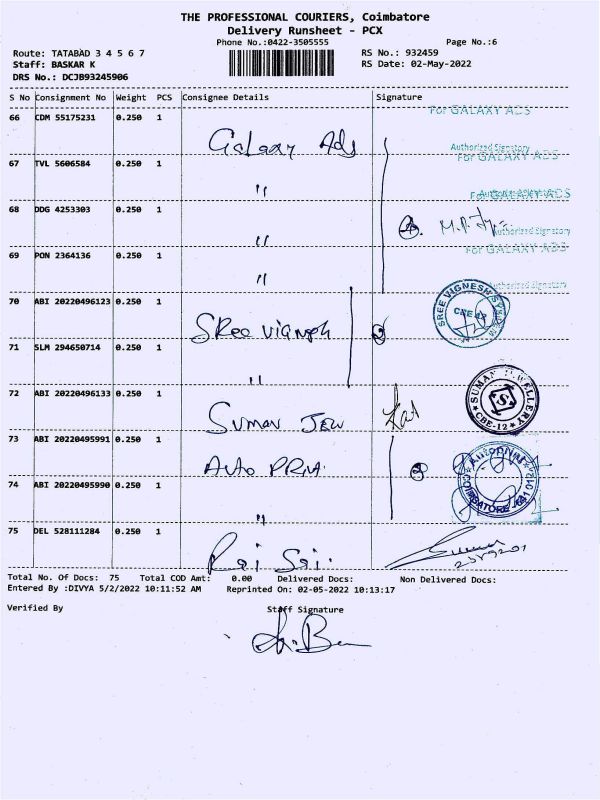 THE PROFESSIONAL COURIERS, Coimbatore
Delivery Runsheet - PCX
Phone No.:0422-3505555 Page No.:6
Route: TATABAD 3 4 5 6 7 RS No.: 932459
Staff: BASKAR K RS Date: 02-May-2022
DRS No.: DCJB93245906
S No Consignment No Weight PCS Consignee Details Signature
66 CDM 55175231 0.250 1 For GALAXY ADS
Galaxy Ads Authorized Signatory
67 TVL 5606584 0.250 1 For GALAXY ADS
" For GALAXY ADS
68 DDG 4253303 0.250 1
" Authorized Signatory
69 PON 2364136 0.250 1 For GALAXY ADS
" Authorized Signatory
70 ABI 20220496123 0.250 1 SREE VIGNESH
Sree Vignesh
71 SLM 294650714 0.250 1
"
72 ABI 20220496133 0.250 1 SUMAN JEWELLERY
Suman Jew CBE-12
73 ABI 20220495991 0.250 1 AutoPrint
Auto Print COIMBATORE - 641 012
74 ABI 20220495990 0.250 1
"
75 DEL 528111284 0.250 1
Rai Sai
Total No. Of Docs: 75 Total COD Amt: 0.00 Delivered Docs: Non Delivered Docs:
Entered By :DIVYA 5/2/2022 10:11:52 AM Reprinted On: 02-05-2022 10:13:17
Verified By Staff Signature